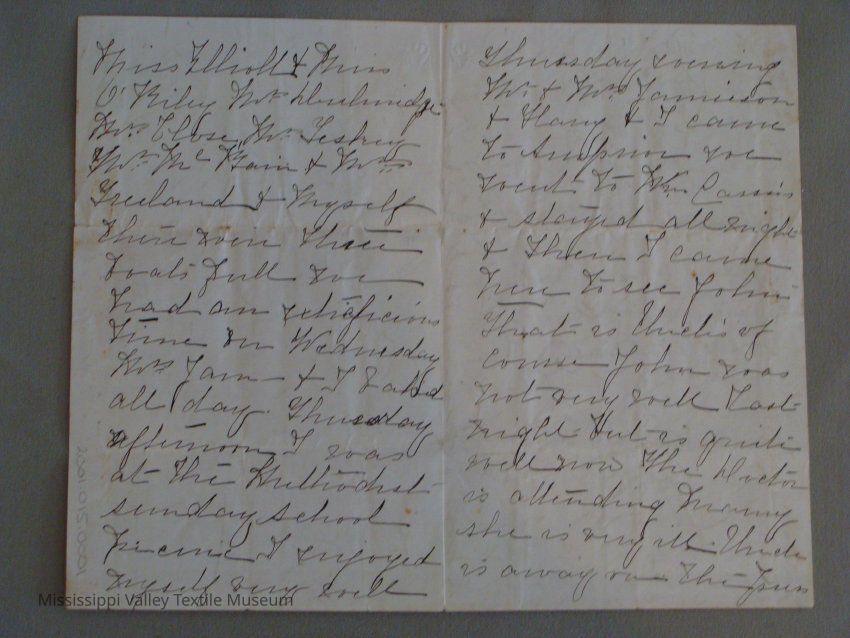 Miss Elliott & Miss
O'Riley Mrs
Mrs Close Mr Teskey
Mrs Mc Bain & Mrs
Ireland & Myself
there were three
boats full we
had an
time on Wednesday
Mrs Jam- & I baked
all day. Thursday
afternoon I was
at the Methodist
sunday school
Picnic I enjoyed
myself very well
Thursday evening
Mr. & Mrs Jamieson
& Harry & I came
to Arnprior we
went to Wm
& stayed all night
& then I came
here to see John
That is Uncle's of
course John was
not very well last
night but is quite
well now the Doctor
is attending
she is very ill. Uncle
is away on the
2001.015.0001
Mississippi Valley Textile Museum